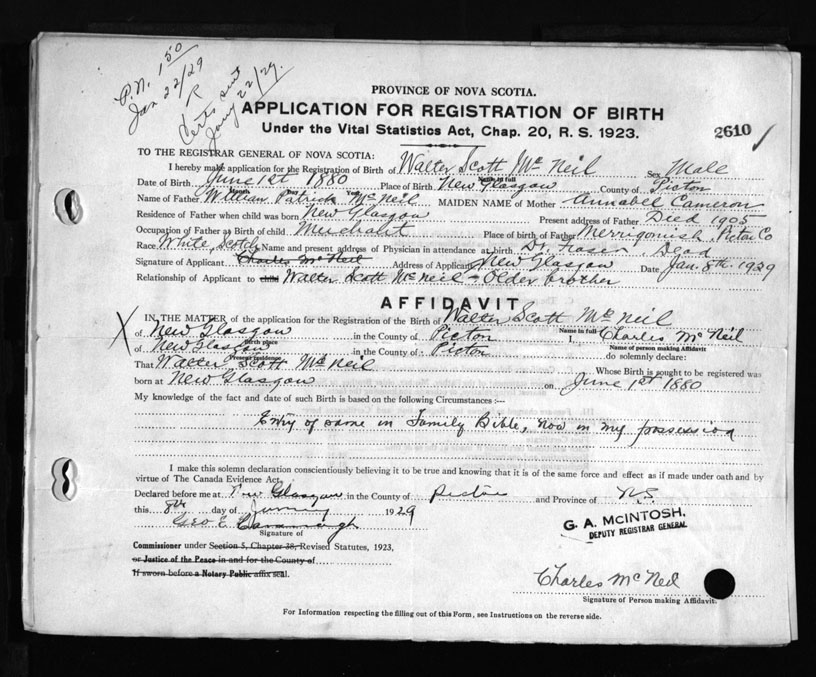 P.N. 1 50
Jan 22/29
R
Certs sent
Jany 22/29.
PROVINCE OF NOVA SCOTIA.
APPLICATION FOR REGISTRATION OF BIRTH
Under the Vital Statistics Act, Chap. 20, R. S. 1923.
2610
TO THE REGISTRAR GENERAL OF NOVA SCOTIA:
I hereby make application for the Registration of Birth of Walter Scott Mc Neil Sex Male
Name in full
Date of Birth June 1st 1880 Place of Birth New Glasgow County of Picton
Month Day Year
Name of Father William Patrick Mc Neil MAIDEN NAME of Mother Annabel Cameron
Residence of Father when child was born New Glasgow Present address of Father Died 1905
Occupation of Father at Birth of child Merchant Place of birth of Father Merrigomish, Picton Co
Race White Scotch Name and present address of Physician in attendance at birth Dr. Fraser. Dead
Signature of Applicant Charles McNeil Address of Applicant New Glasgow Date Jan. 8th 1929
Relationship of Applicant to child Walter Scott McNeil - Older brother
AFFIDAVIT
IN THE MATTER of the application for the Registration of the Birth of Walter Scott Mc Neil
Name in full
of New Glasgow in the County of Picton I, Charles McNeil
Birth place Name of person making Affidavit
of New Glasgow in the County of Picton do solemnly declare:
Present residence
That Walter Scott McNeil Whose Birth is sought to be registered was
born at New Glasgow on June 1st 1880
My knowledge of the fact and date of such Birth is based on the following Circumstances :---
Entry of same in Family Bible, now in my possession
I make this solemn declaration conscientiously believing it to be true and knowing that it is of the same force and effect as if made under oath and by
virtue of The Canada Evidence Act.
Declared before me at New Glasgow in the County of Picton and Province of N.S.
this 8th day of January 1929
Geo E Cavanaugh
Signature of
G. A. McINTOSH,
DEPUTY REGISTRAR GENERAL
Commissioner under Section 5, Chapter 38, Revised Statutes, 1923,
or Justice of the Peace in and for the County of
If sworn before a Notary Public affix seal.
Charles McNeil
Signature of Person making Affidavit.
For Information respecting the filling out of this Form, see Instructions on the reverse side.